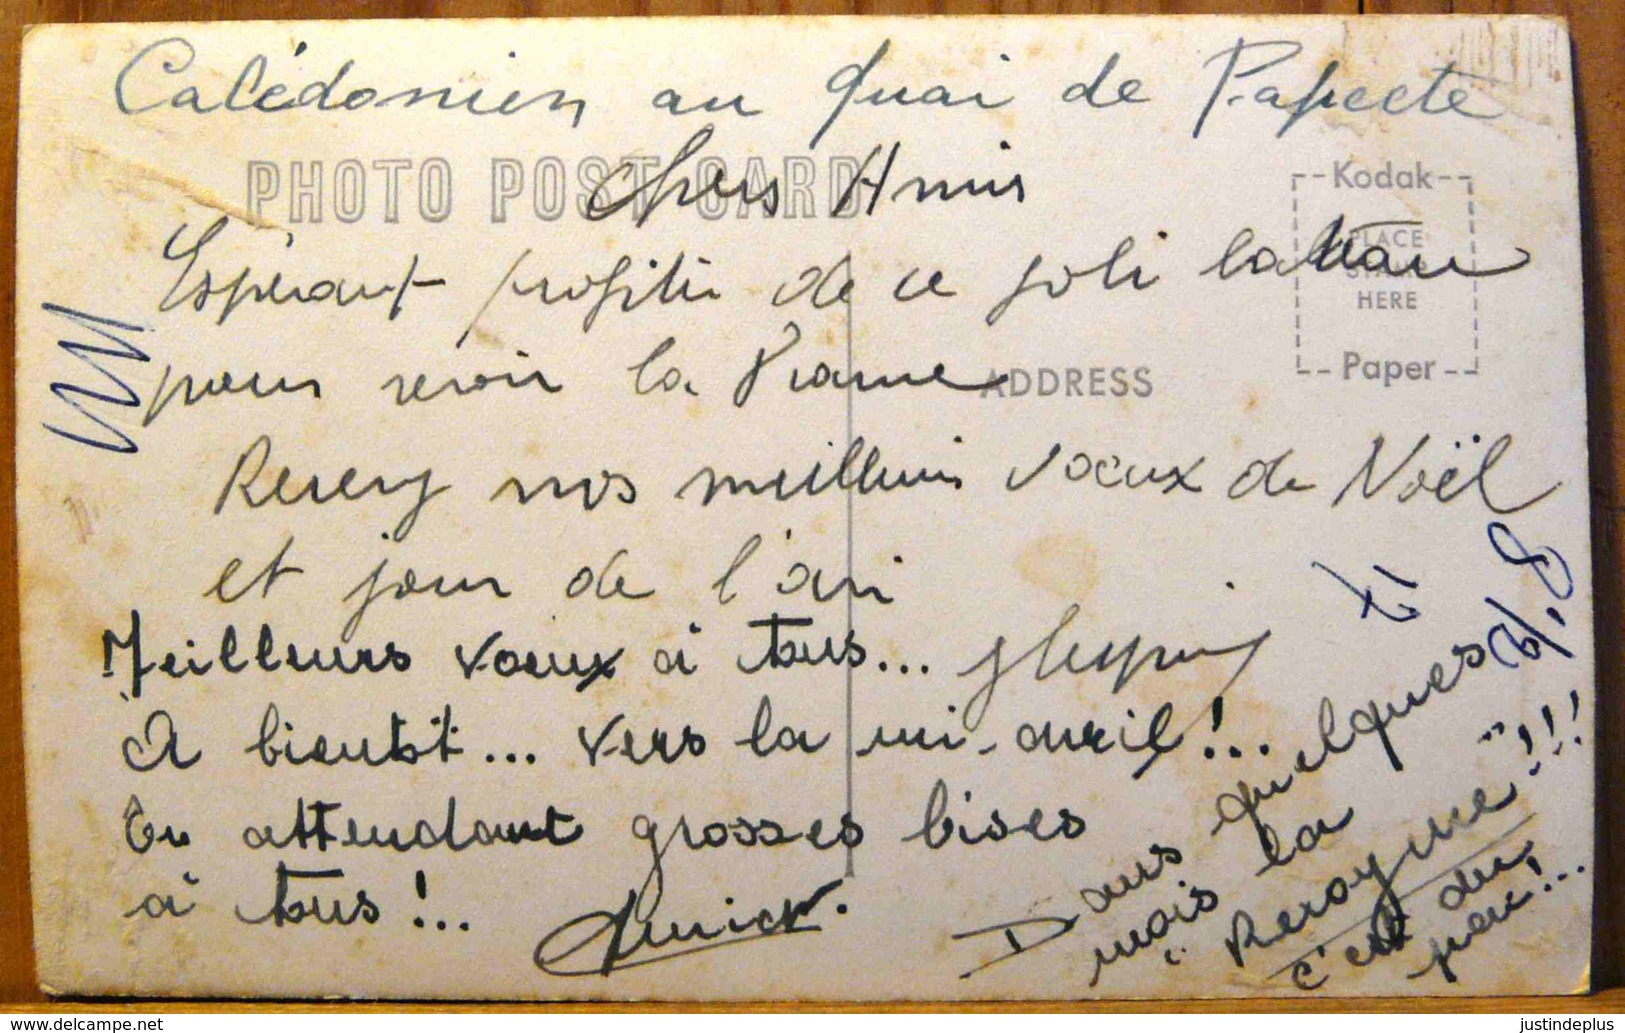 Calédonien au quai de Papeete
PHOTO POST CARD
Chers Amis
Kodak
PLACE
STAMP
HERE
Paper
Espérant profiter de ce joli bateau
pour revoir la France
ADDRESS
Recevez nos meilleurs voeux de Noël
et jour de l'an
Meilleurs voeux à tous...
A bientôt... vers la mi-avril!...
En attendant grosses bises
à tous!..
Annick.
Dans quelques
mois la
"Reroyme"!!!
c'est du
peu!...
justindeplus